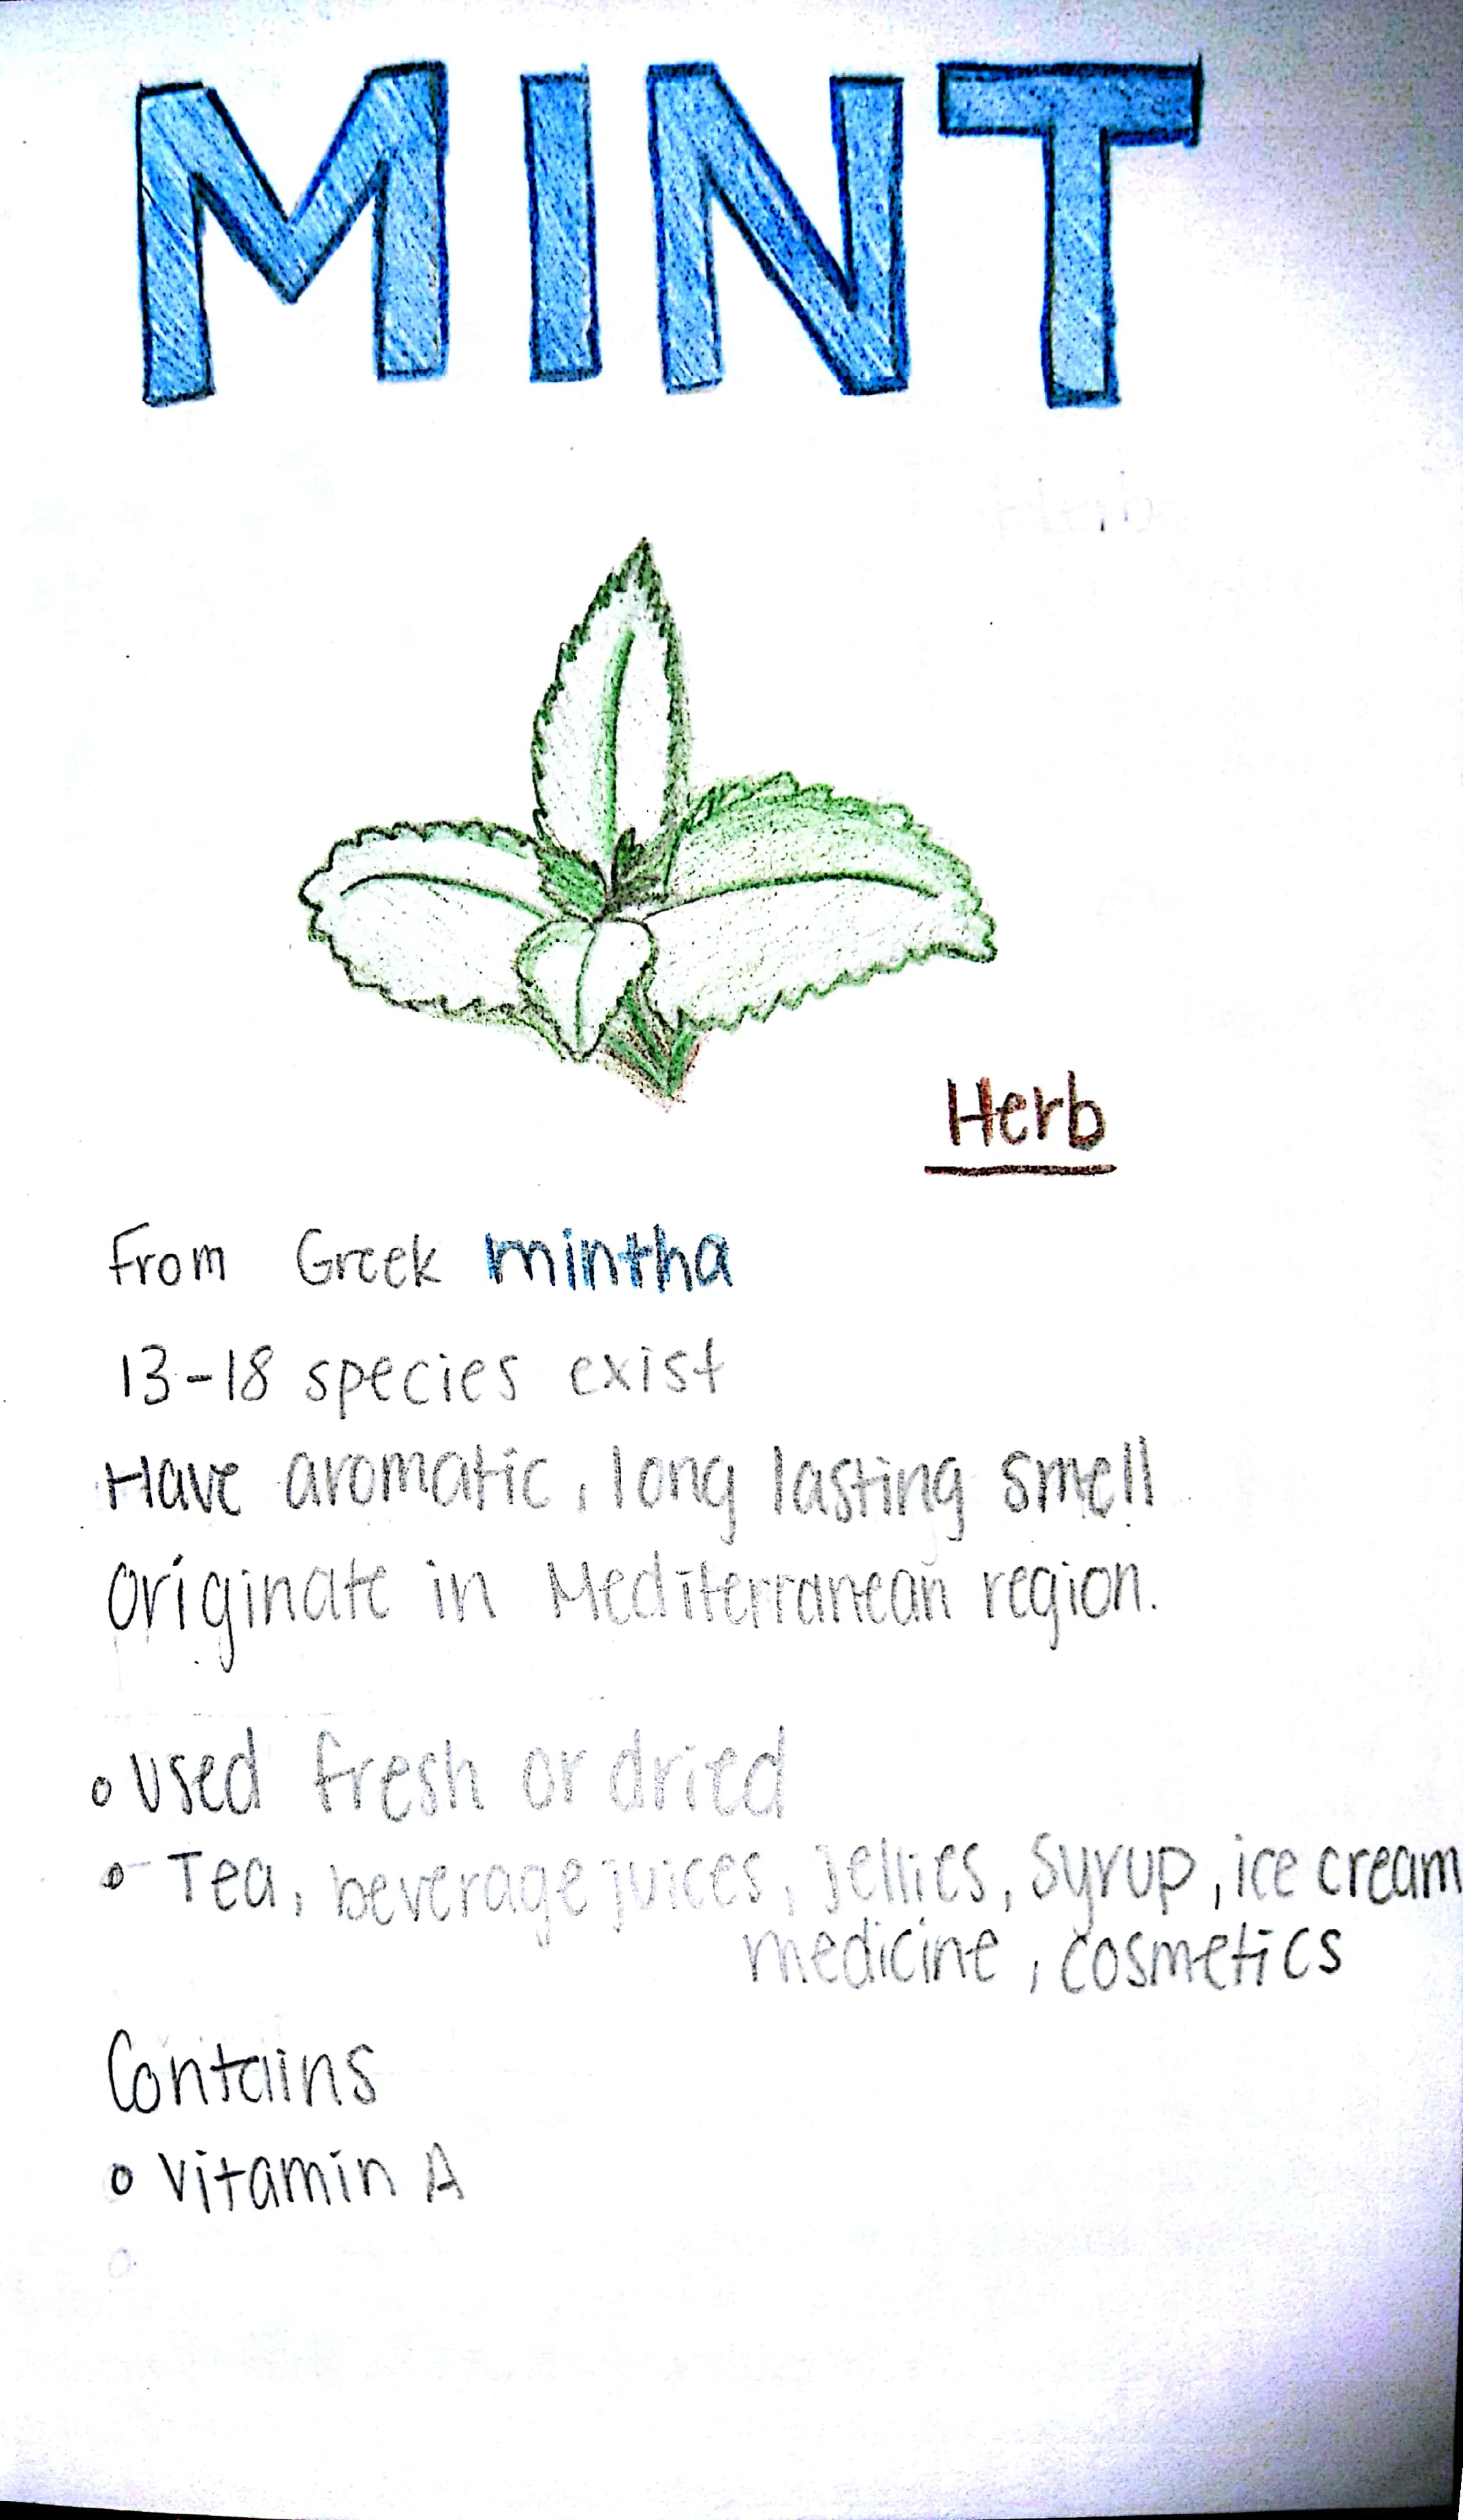 MINT
Herb
From Greek mintha
13-18 species exist
Have aromatic, long lasting smell
Originate in Mediterranean region.
o Used fresh or dried
o Tea, beverage juices, jellies, syrup, ice cream
medicine, cosmetics
Contains
o Vitamin A